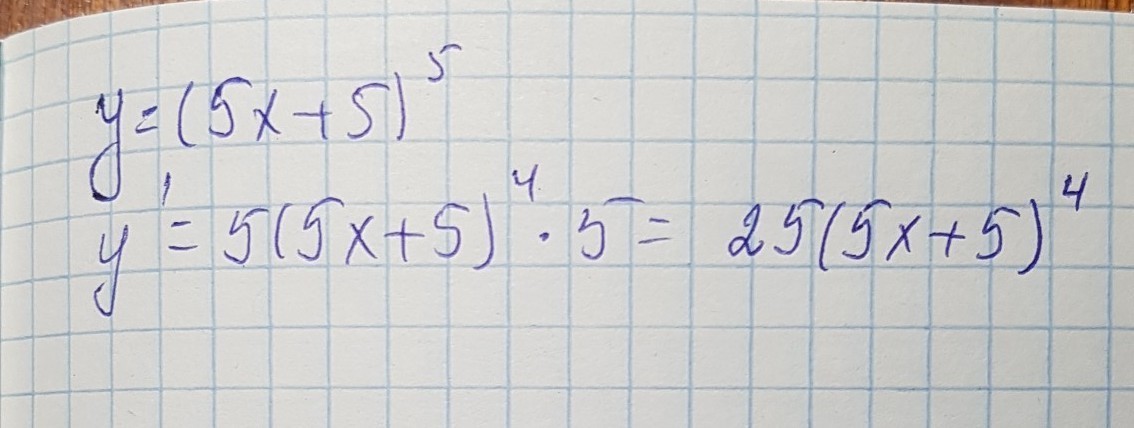 y=(5x+5)^5
y'=5(5x+5)^4·5= 25(5x+5)^4